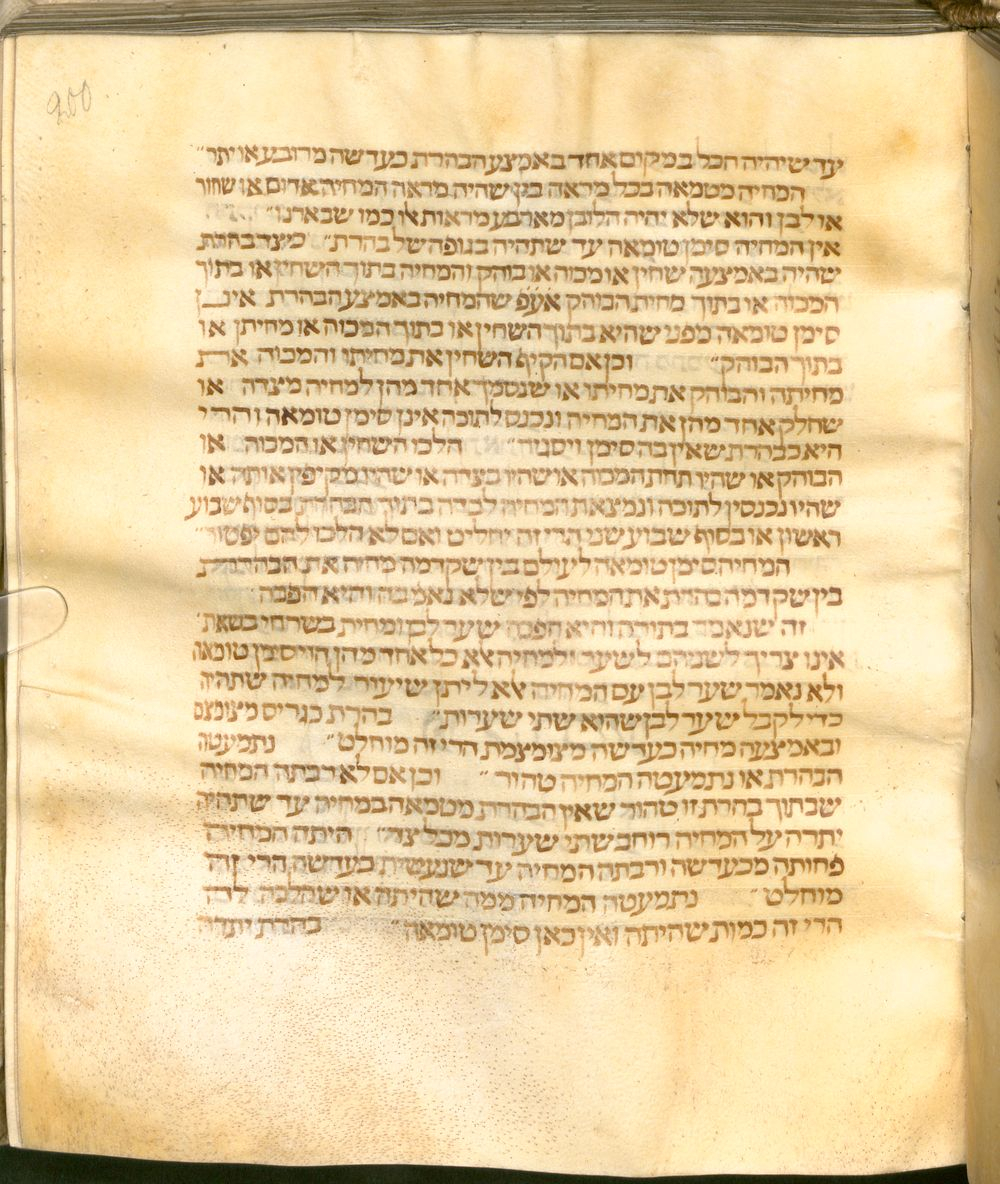 200
עד שיהיה הכל במקום אחד באמצע הבהרת כעדשה מרובע או יתר״
המחיה מטמאה בכל מראה בין שהיה מראה המחיה אדום או שחור
או לבן והוא שלא יהיה הלובן מארבע מראות אלו כמו שבארנו״
אין המחיה סימן טומאה עד שתהיה בגופה של בהרת״ כיצד בהרת
שהיה באמצעה שחין או מכוה או בוהק והמחיה בתוך השחין או בתוך
המכוה או בתוך מחית הבוהק אעפ שהמחיה באמצע הבהרת אינן
סימן טומאה מפני שהיא בתוך השחין או בתוך המכוה או מחיתן או
בתוך הבוהק״ וכן אם הקיף השחין את מחיתו והמכוה את
מחיתה והבוהק את מחיתו או שנסמך אחד מהן למחיה מצדה או
שחלק אחד מהן את המחיה ונכנס לתוכה אינן סימן טומאה והרי
היא כבהרת שאין בה סימן ויסגיר״ הלכו השחין או המכוה או
הבוהק או שהיו תחת המכוה או שהיו בצדה או שהיו מקיפין אותה או
שהיו נכנסין לתוכה ונמצאת המחיה לבדה בתוך הבהרת בסוף שבוע
ראשון או בסוף שבוע שני הרי זה יחליט ואם לא הלכו להם יפטור״
המחיה סימן טומאה לעולם בין שקדמה מחיה את הבהרת
בין שקדמה בהרת את המחיה לפי שלא נאמ בה והיא הפכה
זה שנאמר בתורה והיא הפכה שער לבן ומחית בשר חי בשאת
אינו צריך לשניהם לשער ולמחיה אלא כל אחד מהן הוי סימן טומאה
ולא נאמר שער לבן עם המחיה אלא ליתן שיעור למחיה שתהיה
כדי לקבל שער לבן שהוא שתי שערות״ בהרת כגריס מצומצם
ובאמצעה מחיה כעדשה מצומצמת הרי זה מוחלט״ נתמעטה
הבהרת או נתמעטה המחיה טהור״ וכן אם לא רבתה המחיה
שבתוך בהרת זו טהור שאין הבהרת מטמאה במחיה עד שתהיה
יתרה על המחיה רוחב שתי שערות מכל צד״ היתה המחיה
פחותה מכעדשה ורבתה המחיה עד שנעשית כעדשה הרי זה
מוחלט״ נתמעטה המחיה ממה שהיתה או שהלכה לה
הרי זה כמות שהיתה ואין כאן סימן טומאה״ בהרת יתרה